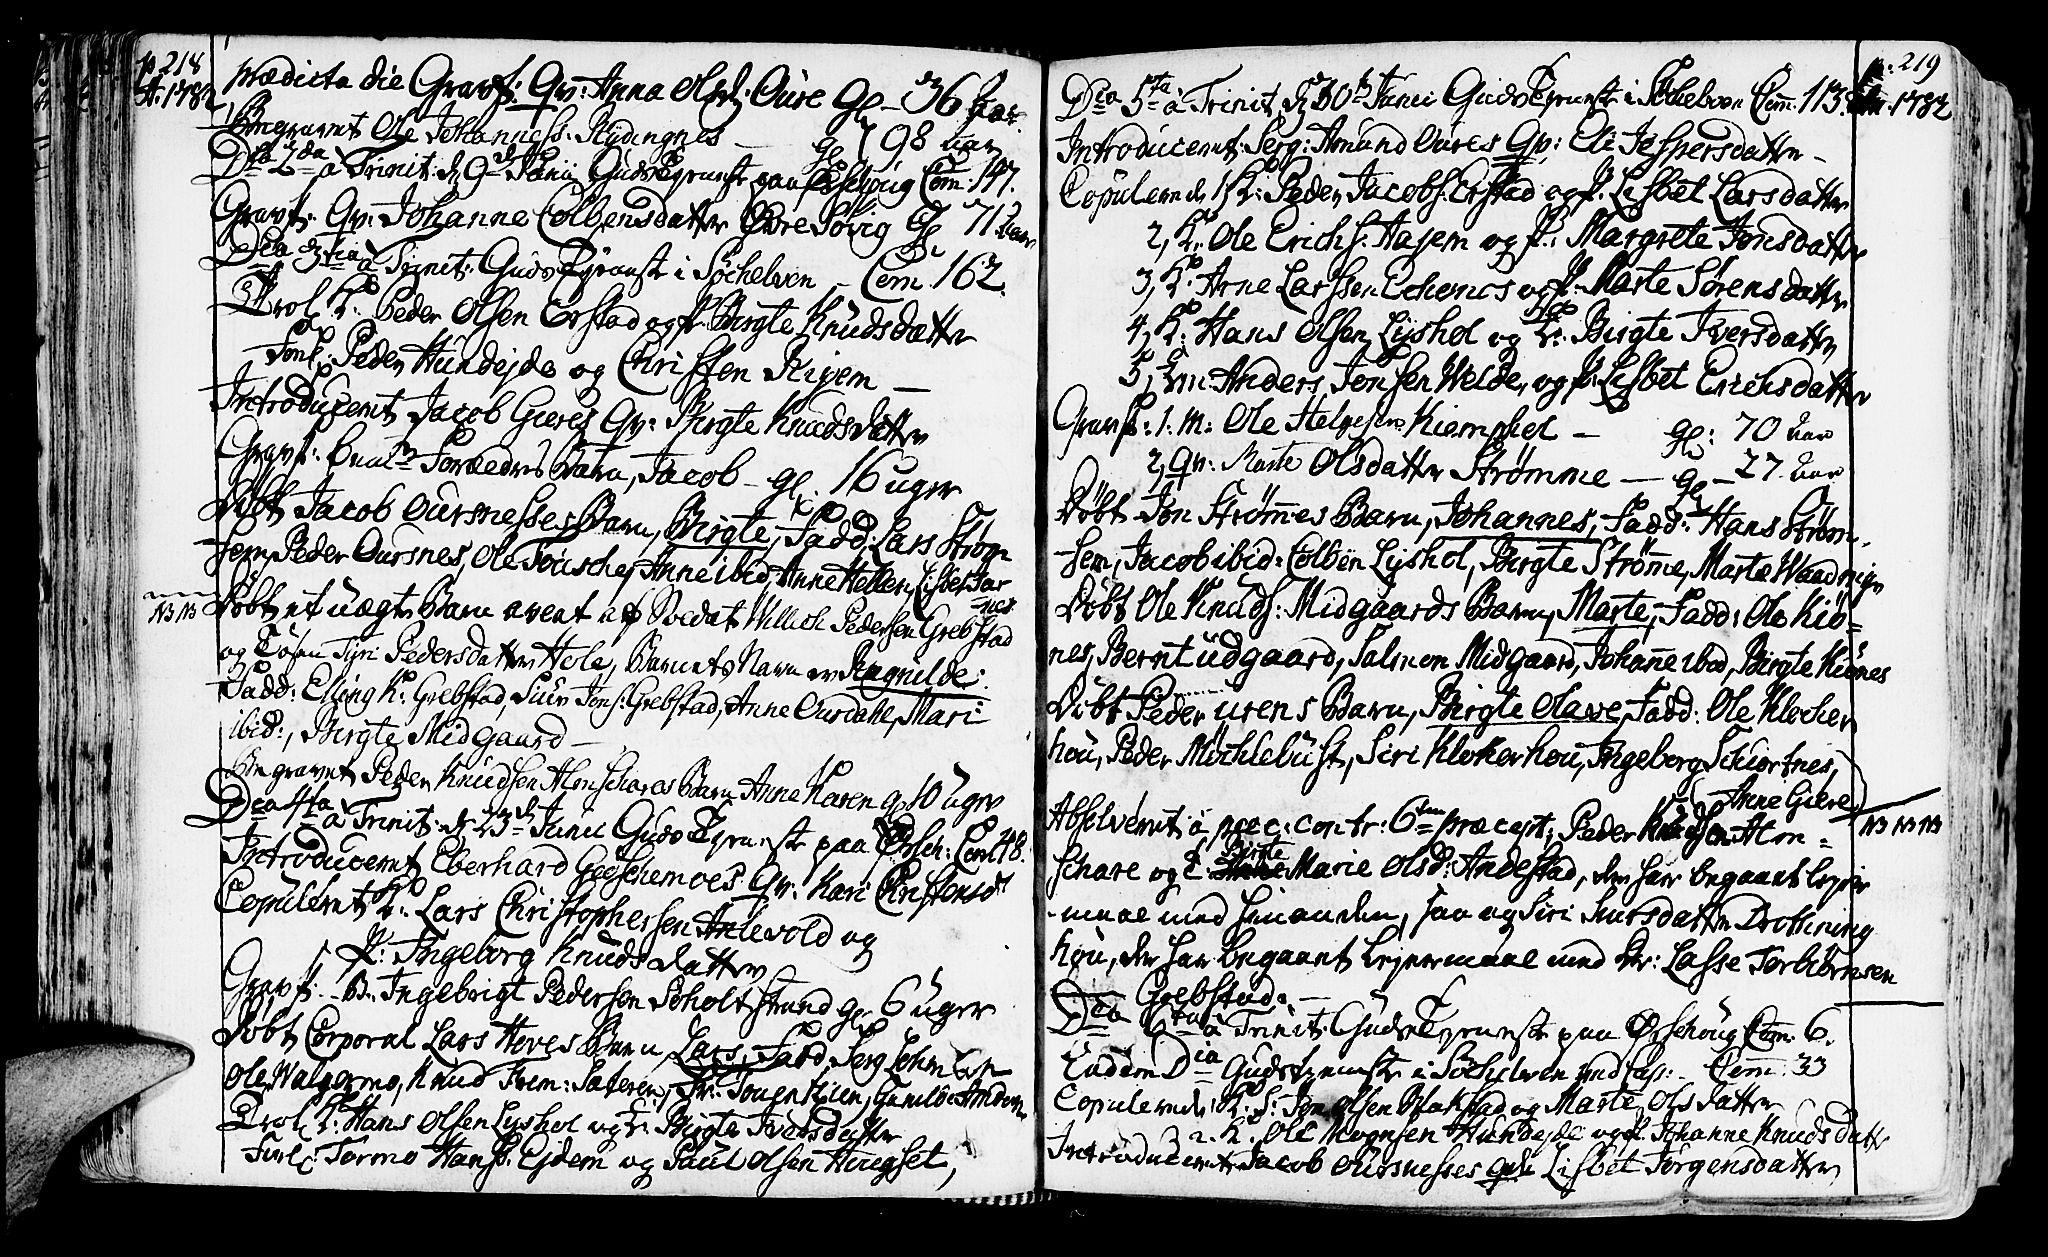 p. 218
A. 1782
Prædicta die Gravf. Qv: Anna Olsd. Oure gl. 36 Aar.
Begravet Ole Johanness. Rydingnes – gl. 98 Aar
Dca 2da à Trinit: d. 9de Junii Gudstjeneste paa Com: 147.
Gravf. Qv: Johanne Colbensdatter Øvre Søvig gl. 71 Aar
Dca 3tia à Trinit: Gudstjeneste i Söchelven – Com. 162.
Trol. K. Peder Olsen Erstad og P. Birgte Knudsdatter
Forl: Peder Hundejde og Christen Rijem –
Introduceret Jacob Gieres Qv: Birgte Knudsdatter
Gravf: Barn, Jacob – gl. 16 uger
Döbt Jacob Oursnesses Barn, Birgte, Fadd: Lars Strøm
-hem, Peder Oursnes, Ole Tousche, Anne ibid, Anne Hellen, Lisbet Aar
-nes
NB NB Döbt et uægte Barn avlet af Soldat Willich Pedersen Grebstad
og Tösen Tyri Pedersdatter Hole, Barnets Navn er Ragnilde.
Fadd: Elling K. Grebstad, Siur Jons. Grebstad, Anne Ourdahl, Mari
ibid:, Birgte Midgaard –
Begravet Peder Knudsen Almschares Barn Anne Karen gl. 10 uger
Dca 4ta à Trinit: d. 23de Junii Gudstjeneste paa Ørsch: Com 48.
Introduceret Eberhard Qv: Kari Christensd.
Copuleret K. Lars Christophersen Anlevold og
P. Ingeborg Knudsdatter
Gravf. – B. Ingebrigt Pedersen Soholtstrand gl. 6 uger
Döbt Corporal Lars Hoves Barn Lars, Fadd, Serg
Ole Walgermo, Knud
Trol. K. Hans Olsen Lyshol og Birgte Iversdatter
Forl: Tormo Hans. Ejdem og Paul Olsen Haugset,
p. 219
A. 1782
Dca 5ta à Trinit. d. 30te Junii Gudstjeneste i Söchelven Com. 113.
Introduceret: Serg: Amund Oures Qv: Eli Jespersdatter –
Copulerede 1, K. Peder Jacobs. Erstad og P. Lisbet Larsdatter
2, K. Ole Erichs. Hajem og P. Margrete Jonsdatter
3, K. Arne Larssen Echornes og P. Marte Sörensdatter
4, K. Hans Olsen Lyshol og Birgte Iversdatter
5, Anders Jonsen Welde, og P. Lisbet Erichsdatter
Gravf: 1. M: Ole Helgesen Kiemphol – gl: 70 Aar
2, Qv: Marte Olsdatter Strømme – gl – 27. Aar
Döbt Jon Strømmes Barn, Johannes, Fadd: Hans Strøm-
hem, Jacob ibid: Colben Lyshol, Birgte Strømme, Marte
Döbt Ole Knuds: Midgaards Barn, Marte, Fadd: Ole Kiö=
nes, Bernt Udgaard, Salmon Midgaard, Johanne ibid, Birgte Kiönes
Döbt Peder Urens Barn, Birgte Olave, Fadd: Ole Klocher
hou, Peder Möchlebust, Siri Klokerhou, Ingeborg Schiortnes,
Anne Giere
NB NB NB Absolveret à pecc: contr: 6tum præcept: Peder Knudsen Alm=
schare og T. Birgte Marie Olsd: Andestad, der har begaaet leyer
-maal med hinanden, saa og Siri Siursdatter Drotning
hou, der har begaaet Lejermaal med K: Lasse Torbiörnsen
Grebstad. –
Dca 6ta à Trinit: Gudstjeneste paa Ørschoug Com. 6.
Eadem Dia Gudstjeneste i Söchelven ved Cap: – Com: 33
Copulerede 1. K. S. Jon Olsen Blakstad og Marte Olsdatter
2. K. Ole Mognsen Hundejde og P. Johanne Knudsdatter
Introduceret Jacob Oursnesses Lisbet Jörgensdatter